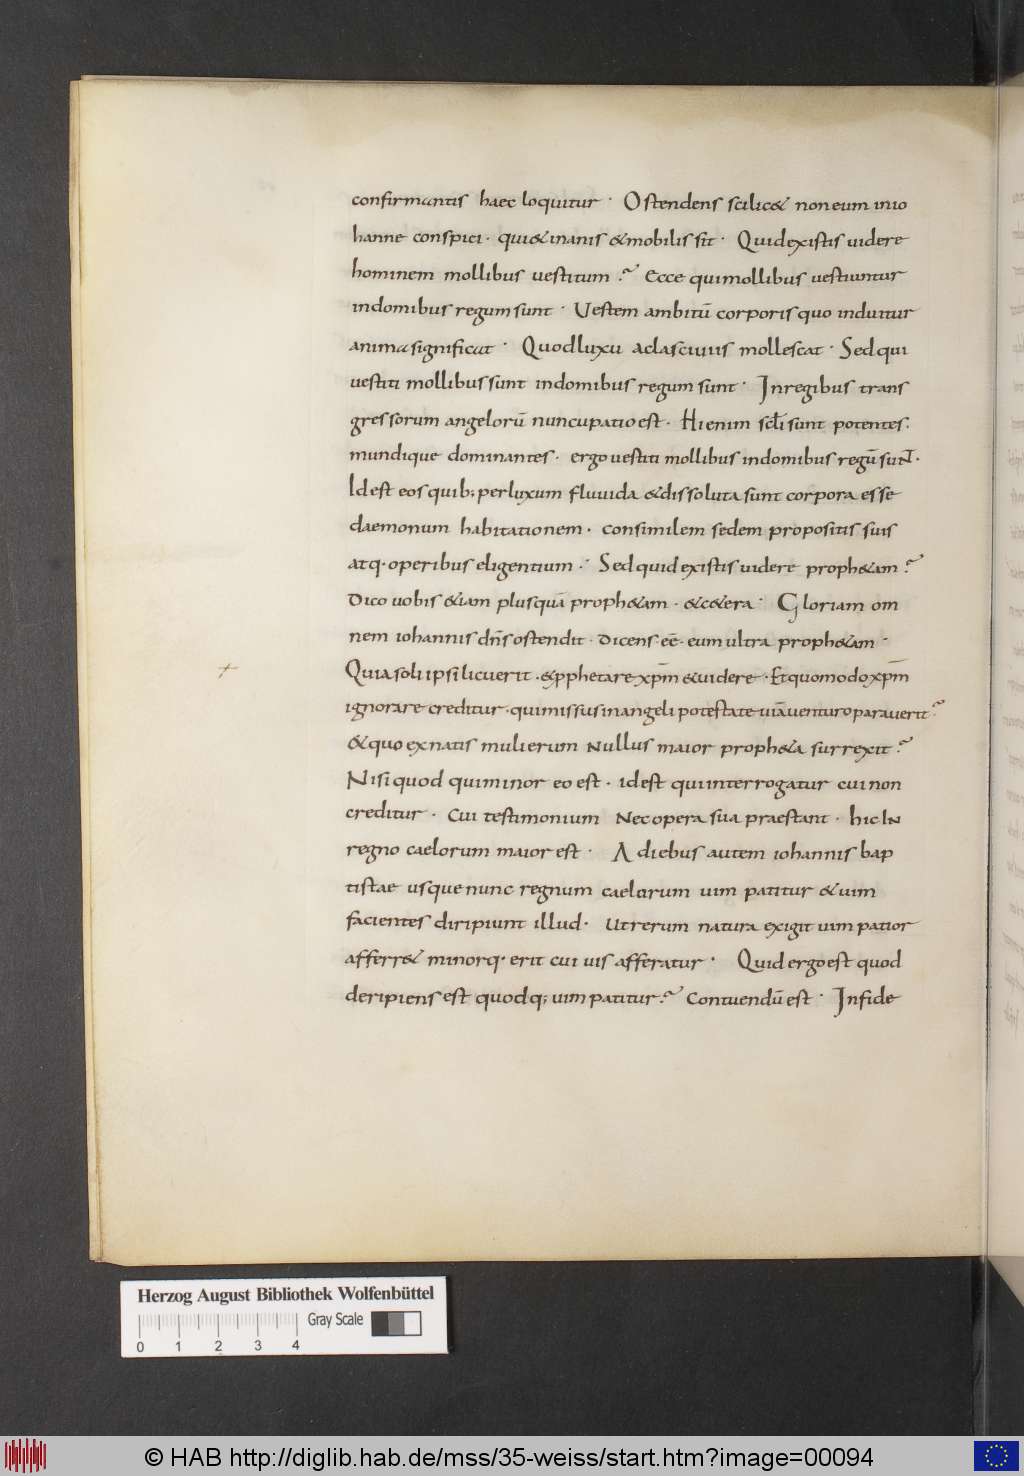 confirmantis haec loquitur · Ostendens scilic& non eum inio
hanne conspici · qui & inanis & mobilis sit · Quid existis uidere
hominem mollibus uestitum ? Ecce qui mollibus uestiuntur
in domibus regum sunt · Uestem ambitū corporis quo induitur
anima significat · Quod luxu ac lasciuiis mollescat · Sed qui
uestiti mollibus sunt in domibus regum sunt · In regibus trans
gressorum angelorū nuncupatio est · Hi enim scłi sunt potentes ·
mundique dominantes · ergo uestiti mollibus in domibus regū sunt ·
Id est eos quib; per luxum fluuida & dissoluta sunt corpora esse
daemonum habitationem · consimilem sedem propositis suis
atq· operibus eligentium · Sed quid existis uidere proph&am ?
Dico uobis &iam plus quā proph&am · & c&era · Gloriam om
nem iohannis dn̄s ostendit · dicens eē · eum ultra proph&am ·
Quia soli ipsi licuerit · & p̱phetare xp̄m & uidere · Et quomodo xp̄m
ignorare creditur · qui missus in angeli potestate uiā uenturo parauerit ?
& quo ex natis mulierum nullus maior proph&a surrexit ?
Nisi quod qui minor eo est · id est qui interrogatur cui non
creditur · cui testimonium nec opera sua praestant · hic in
regno caelorum maior est · A diebus autem iohannis bap
tistae usque nunc regnum caelorum uim patitur & uim
facientes diripiunt illud · Ut rerum natura exigit uim patior
afferr& minorq· erit cui uis afferatur · Quid ergo est quod
deripiens est quodq; uim patitur ? Contuendū est · In fide
Herzog August Bibliothek Wolfenbüttel
Gray Scale
0 1 2 3 4
© HAB http://diglib.hab.de/mss/35-weiss/start.htm?image=00094